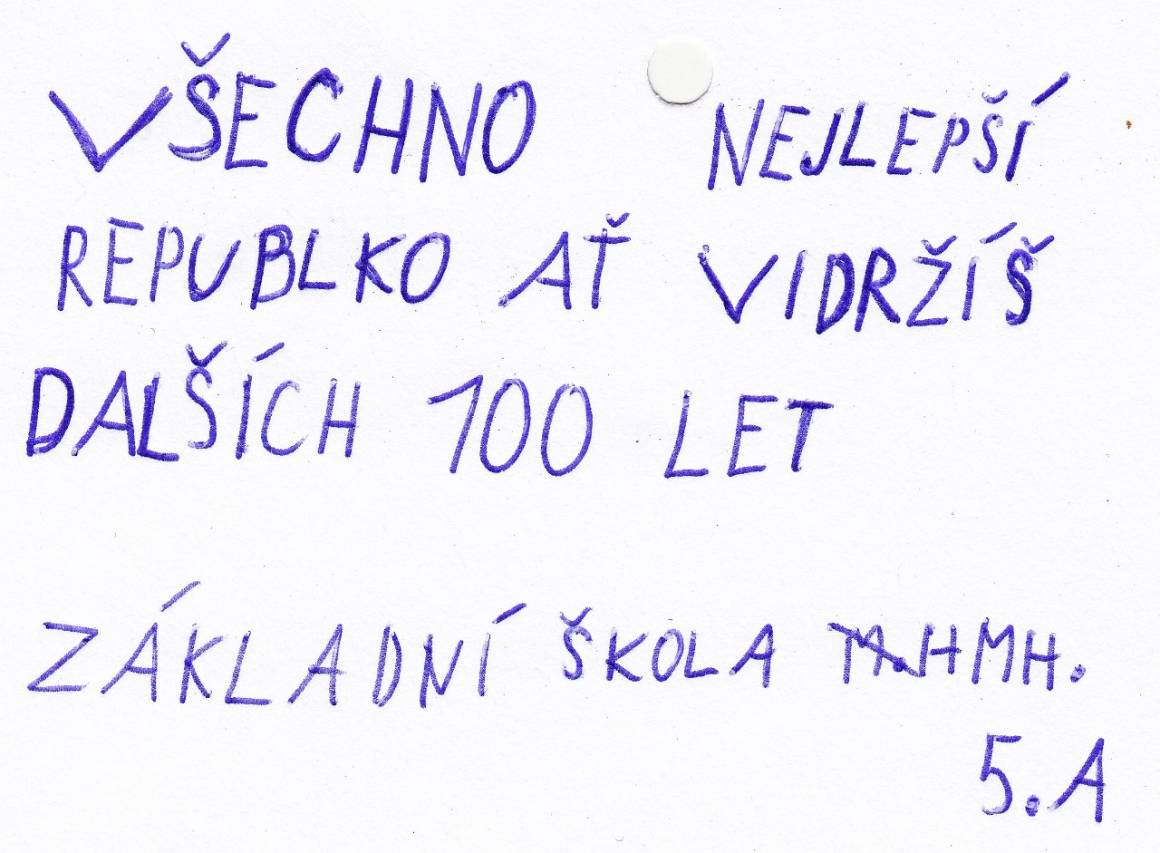 VŠECHNO NEJLEPŠÍ
REPUBLKO AŤ VIDRŽÍŠ
DALŠÍCH 100 LET
ZÁKLADNÍ ŠKOLA
5.A